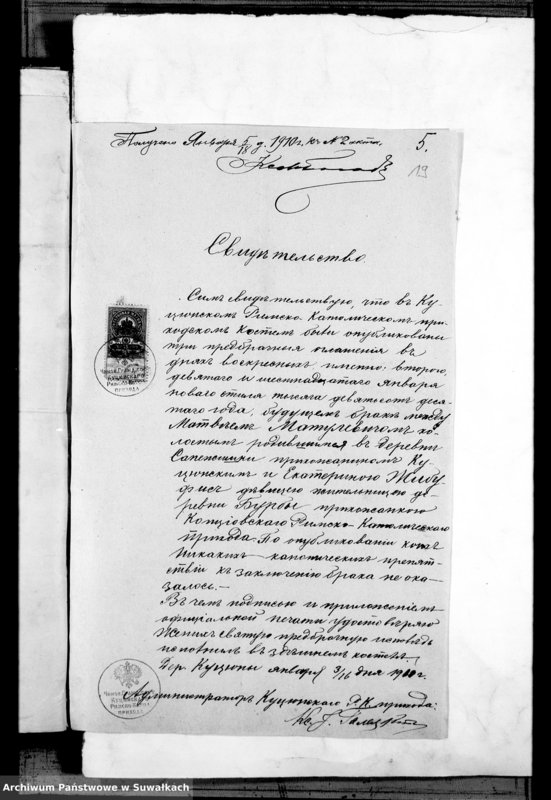 Получено Января 5/18 д. 1910 г. къ № 2 акта.
5.
19
Свидѣтельство.
Симъ свидѣтельствую, что въ Ку-
цюнскомъ Римско-Католическомъ при-
ходскомъ костелѣ были опубликованы
три предбрачныя оглашенія въ
дняхъ воскресныхъ именно: второго,
девятаго и шестнадцатаго Января
новаго стиля тысяча девятсотъ деся-
таго года, о будущемъ бракѣ между
Матвѣемъ Матулевичомъ хо-
лостымъ родившимся въ деревни
прихожаниномъ Ку-
цюнскимъ и Екатериною Жибу
дѣвицею жительницею де-
ревни Бурбы прихожанкою
Копціовскаго Римско-Католическаго
прихода. По опубликованіи коихъ
никакихъ каноническихъ препят-
ствій къ заключенію брака не ока-
залось.—
Въ чемъ подписью и приложеніемъ
официальной печати удостовѣряю
Женихъ святую предбрачную исповѣдь
исполнилъ въ здѣшнемъ костелѣ.
Дер. Куцюны января 3/16 дня 1910 г.
Администраторъ Куцюнского Р. К. прихода:
ПРИХОДА
ПРИХОДА
Archiwum Państwowe w Suwałkach